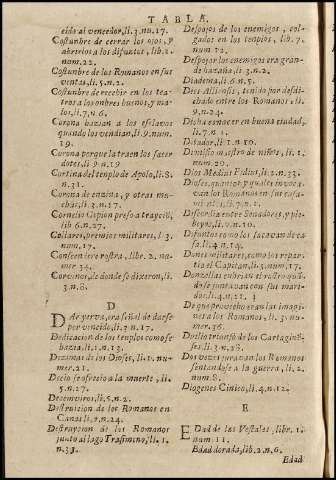 TABLA.
cido al vencedor, li.3.nu.17.
Costunbre de cerrar los ojos, y
abrirlos a los difuntos, lib.1.
num.22.
Costunbre de los Romanos en sus
ventas, li.5.n.2.
Costunbre de recebir en los tea-
tros a los onbres buenos, y ma-
los, li.7.n.6.
Corona hazian a los esclavos
quando los vendian, li.9.num.
19.
Corona porque la traen los sacer-
dotes, li.9.n.19
Cortina del templo de Apolo, li.8.
n.31.
Corona de enzina, y otras mu-
chas, li.3.n.17.
Cornelio Cipion preso a traycio,
lib.6.n.27.
Collares, premios militares, li.3.
num.17.
Consentiere rostra, libr.2. nu-
mer.34.
Corcones, de donde se dixeron, li.
3.n.8.
D
Dar yerva, era señal de darse
por vencido, li.3.n.17.
Dedicacion de los templos como se
hazia, li.1.n.13.
Dezimas de los Dioses, li.1. nu-
mer.21.
Decio se ofrecio a la muerte, li.
5.n.27.
Decemviros, li.5.n.2.
Destruicion de los Romanos en
Canas, li.7.n.24.
Destruycion de los Romanos
junto al lago Trasimino, li.1.
n.33.
Despojos de los enemigos, col-
gados en los tenplos, lib.7.
num.12.
Despojar los enemigos era gran-
de hazaña, li.3.n.2.
Diadema, li.6.n.5.
Dies Alliensis, tenido por desdi-
chado entre los Romanos, li.
9.n.24.
Dicha conocer en buena ciudad,
li.7.n.1.
Ditador, li.1.n.10.
Dionisio maestro de niños, li.1.
num.20.
Dios Medius Fidius, li.2.n.33.
Dioses, quantos, y quales invoca-
van los Romanos en sus casa-
mientos, li.5.n.1.
Discordia entre Senadores, y ple-
beyos, li.7.n.10.
Difuntos como los sacavan de ca-
sa, li.4.n.14.
Dones militares, como los repar-
tia el Capitan, li.3.num.17.
Donzellas cubrian el rostro quã-
do se juntavan con sus mari-
dos, li.4.n.21.
De que provecho eran las imagi-
nes a los Romanos, li.3. nu-
mer.36.
Duilio triunfò de los Cartagine-
ses, li.3.n.28.
Dos vezes juravan los Romanos
sentandose a la guerra, li.2.
num.8.
Diogenes Cinico, li.4.n.12.
E
Edad de las Vestales, libr.1.
num.11.
Edad dorada, lib.2.n.6.
Edad